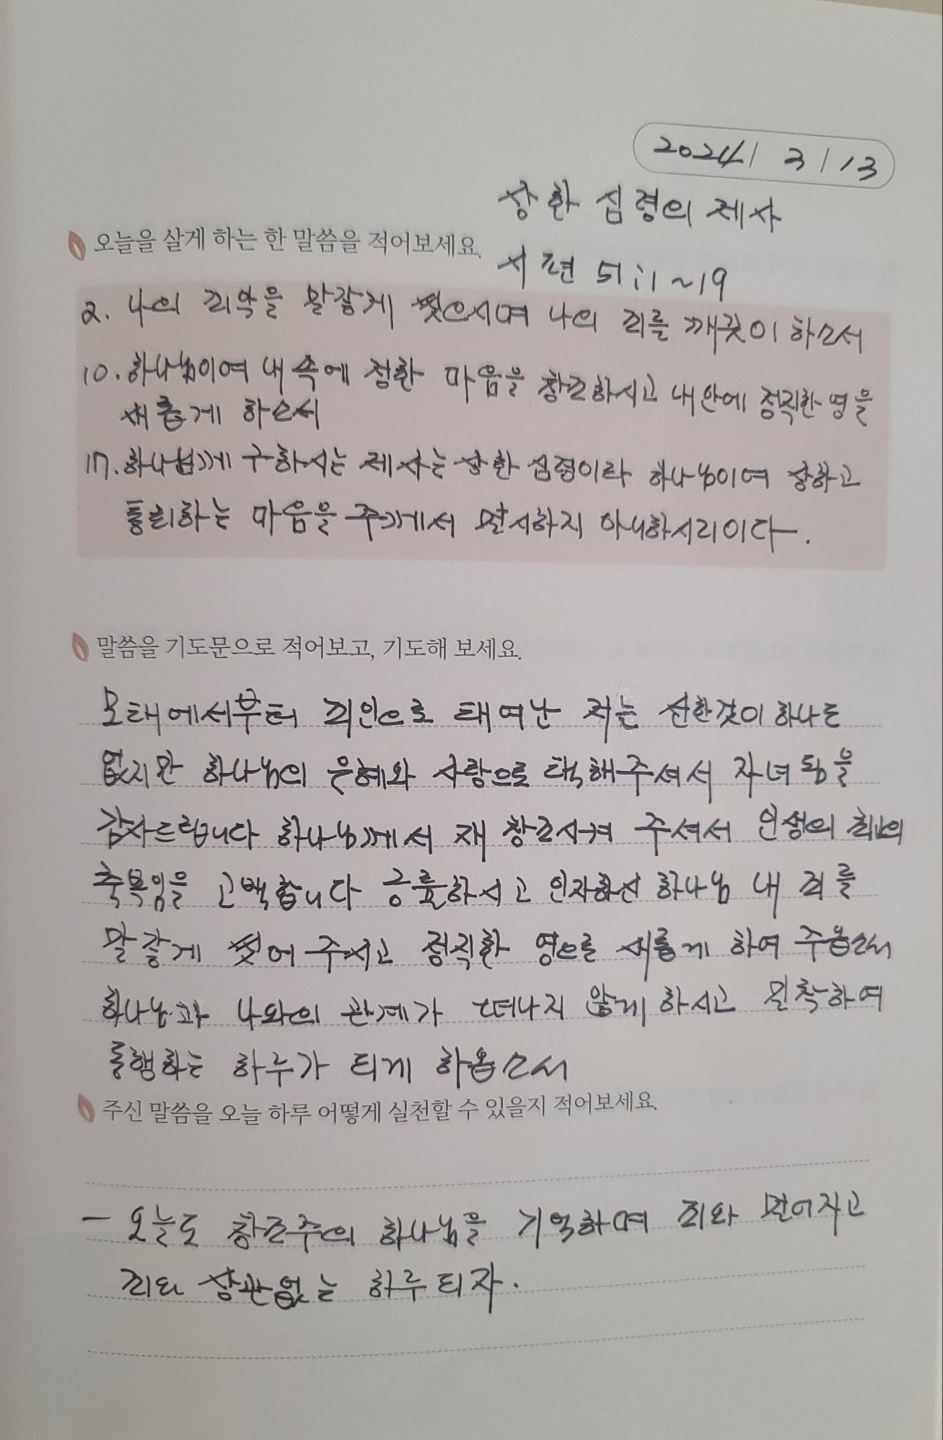 2024/ 3/13
상한 심령의 제사
오늘을 살게 하는 한 말씀을 적어보세요.
시편 51:1~19
2. 나의 죄악을 말갛게 씻으시며 나의 죄를 깨끗이 하소서
10. 하나님이여 내 속에 정한 마음을 창조하시고 내 안에 정직한 영을
새롭게 하소서
17. 하나님께 구하시는 제사는 상한 심령이라 하나님이여 상하고
통회하는 마음을 주께서 멸시하지 아니하시리이다.
말씀을 기도문으로 적어보고, 기도해 보세요.
모태에서부터 죄인으로 태여난 저는 선한것이 하나도
없지만 하나님의 은혜와 사랑으로 택해주셔서 자녀됨을
감사드립니다 하나님께서 재 창조시켜 주셔서 인생의 최고의
축복임을 고백합니다 긍휼하시고 인자하신 하나님 내 죄를
말갛게 씻어 주시고 정직한 영으로 새롭게 하여 주옵소서
하나님과 나와의 관계가 떠나지 않게 하시고 밀착하여
동행하는 하루가 되게 하옵소서
주신 말씀을 오늘 하루 어떻게 실천할 수 있을지 적어보세요.
- 오늘도 창조주의 하나님을 기억하며 죄와 멀어지고
죄와 상관없는 하루 되자.